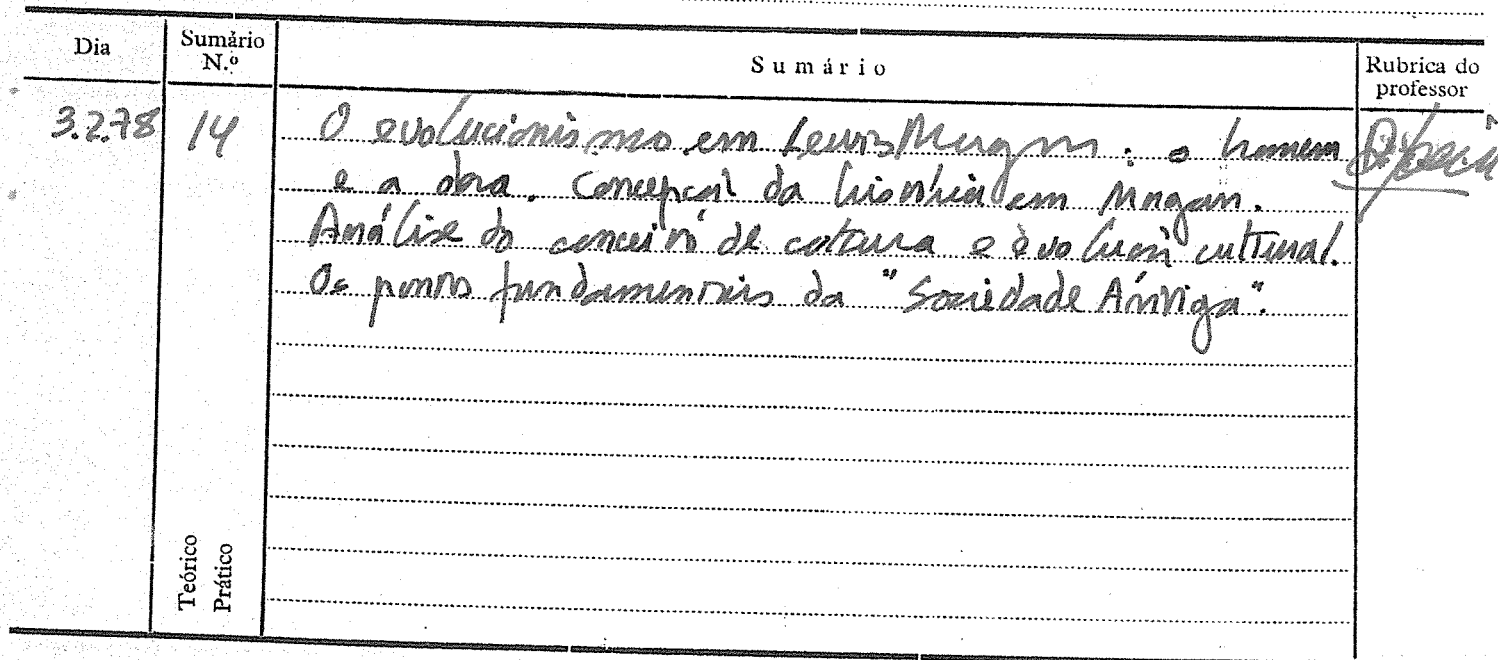 Dia Sumário N.º Sumário Rubrica do professor
3.2.78 14 O evolucionismo em Lewis Morgan: o homem
e a obra. Concepção da história em Morgan.
Análise do conceito de cultura e evolução cultural.
Os pontos fundamentais da "Sociedade Antiga".
Teórico
Prático